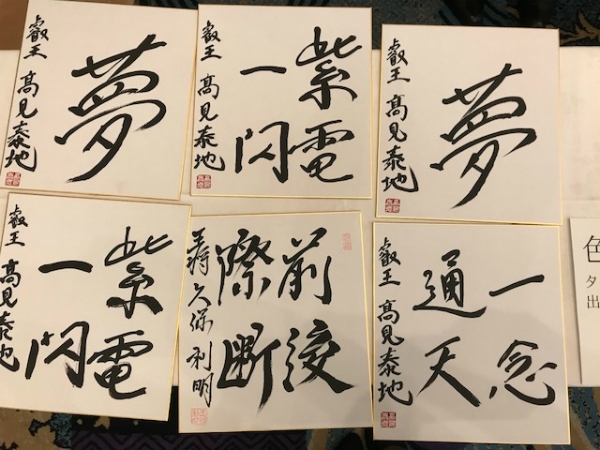 夢
叡王 高見泰地
紫電
一閃
叡王 高見泰地
夢
叡王 高見泰地
紫電
一閃
叡王 高見泰地
前後
際断
王将 久保利明
一念
通天
叡王 高見泰地
色
タ
出